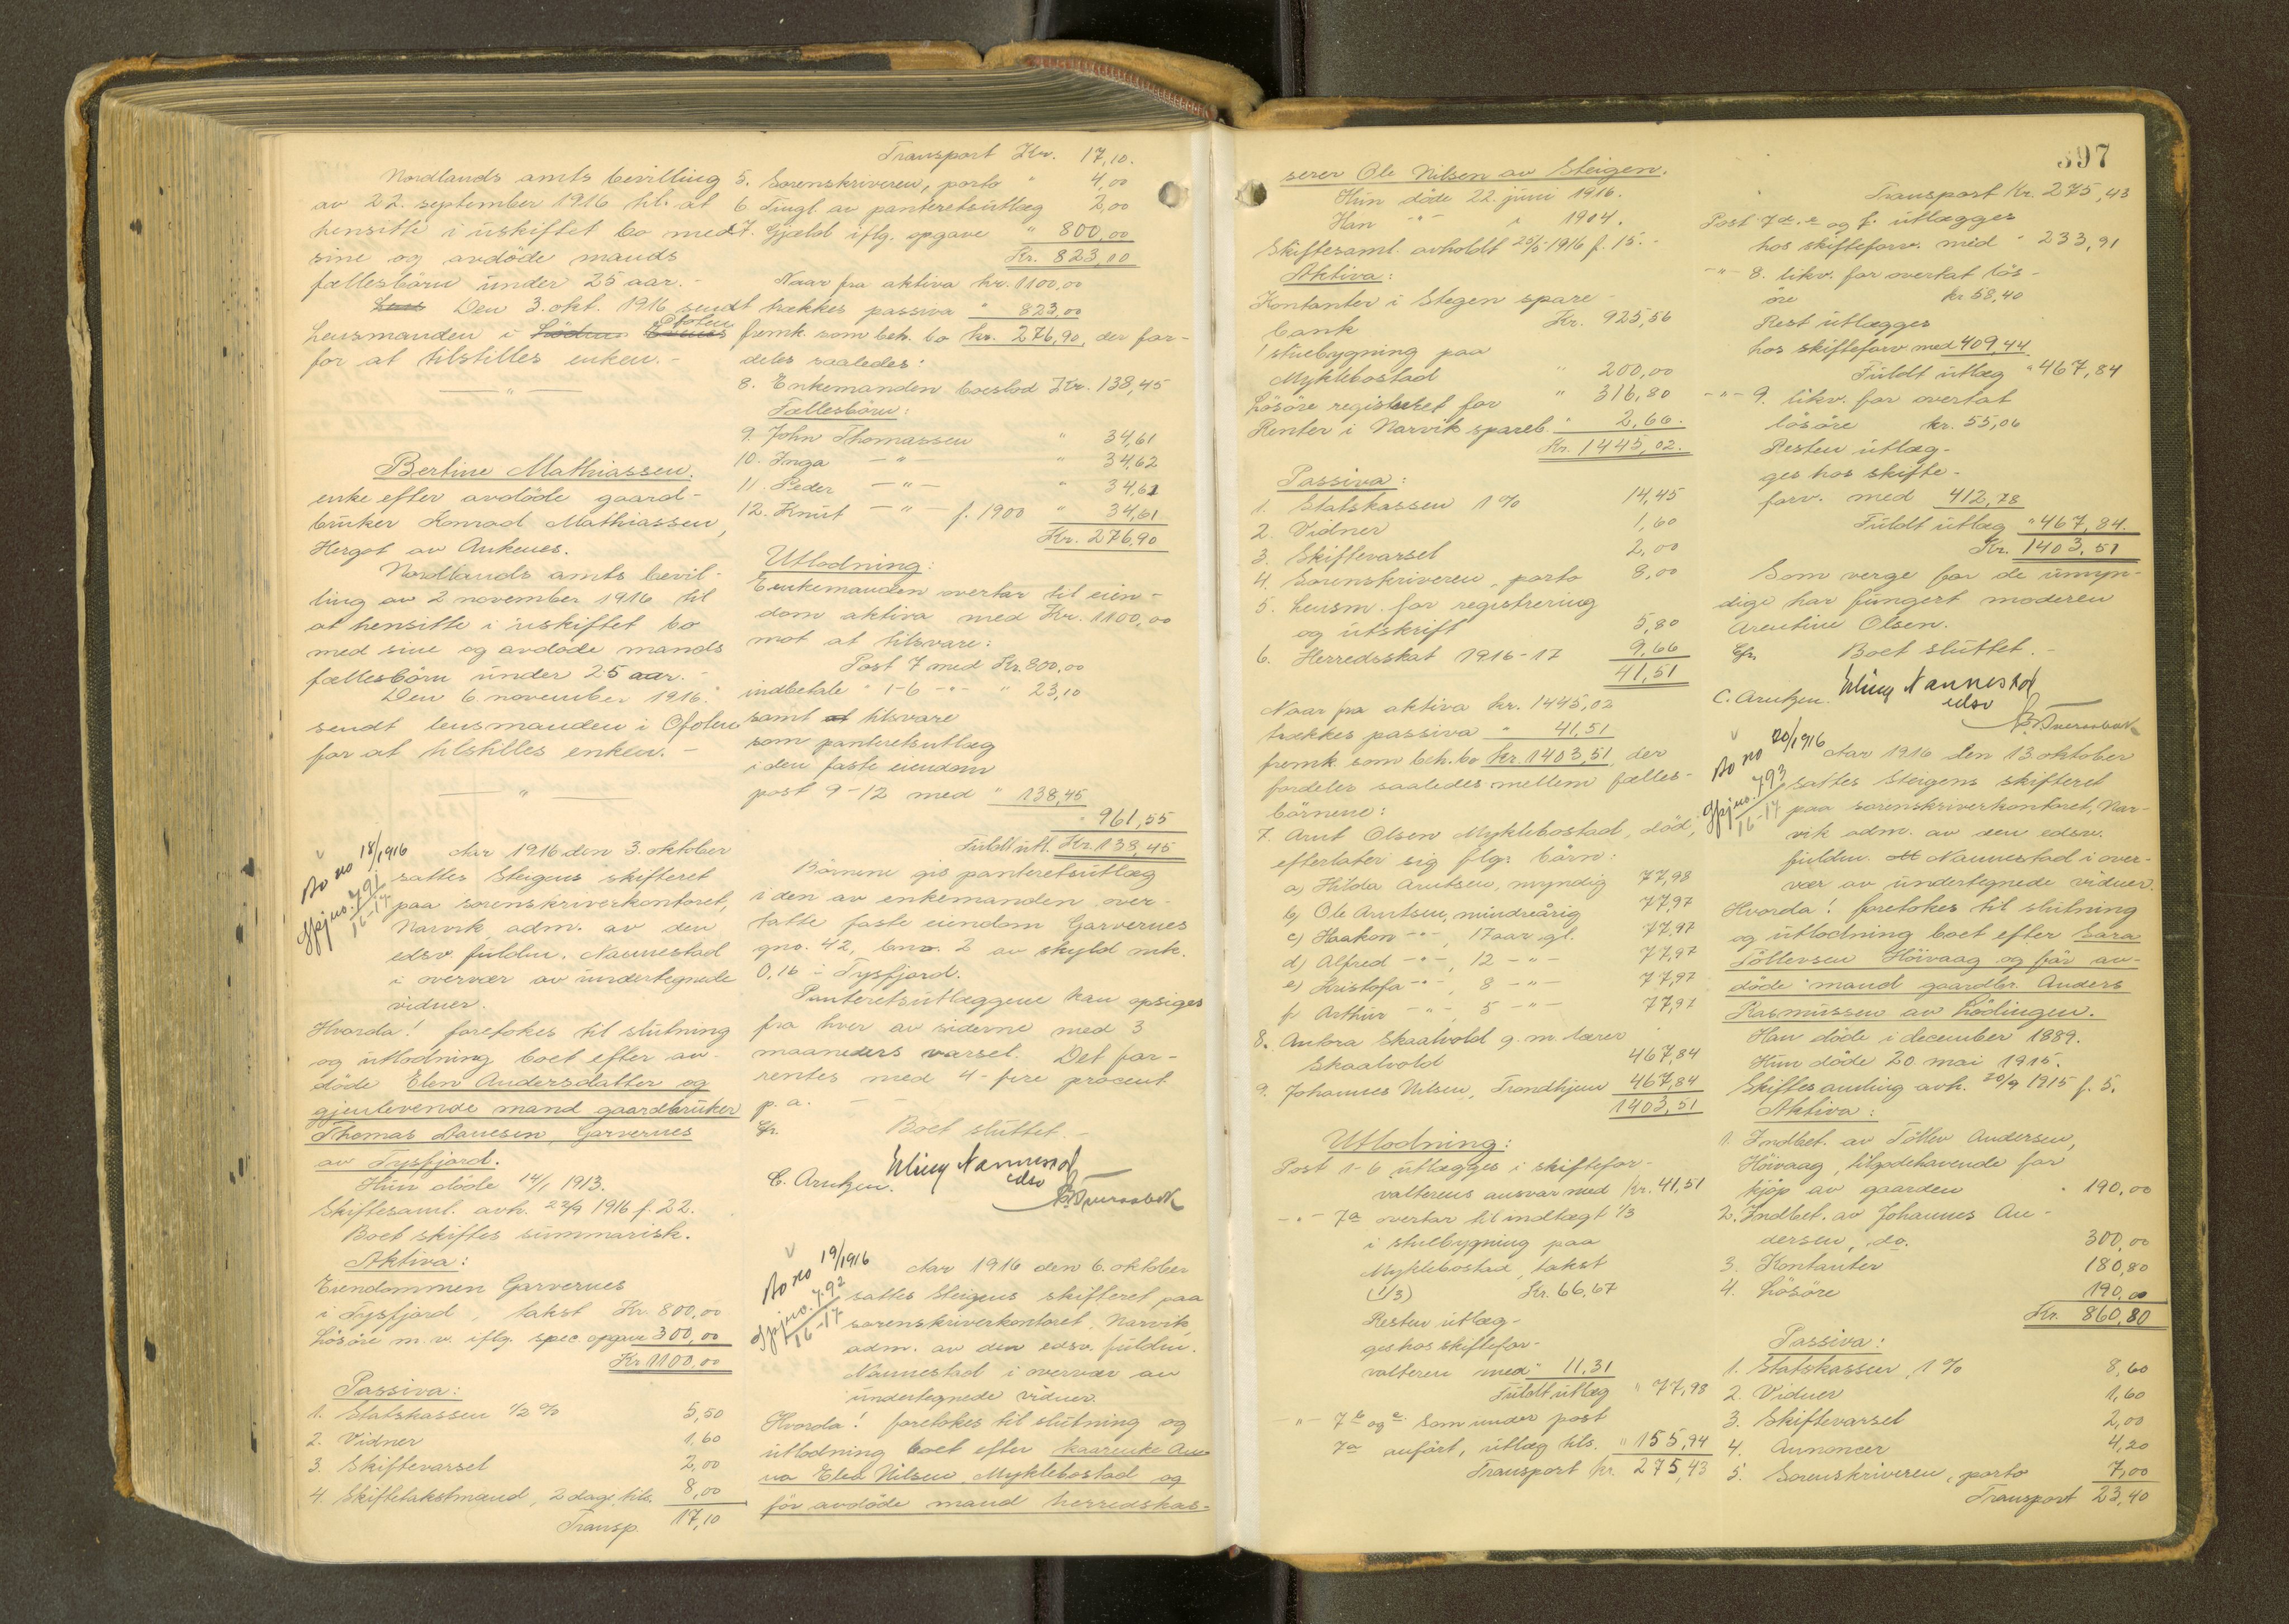 Nordlands amts bevilling
av 22. september 1916 til at
hensitte i uskiftet bo med
sine og avdöde mands
fællesbörn under 25 aar. -
Den 3. okt. 1916 sendt
lensmanden i Ofoten
for at tilstilles enken. -
— " —
Bertine Mathiassen.
enke efter avdöde gaard-
bruker Konrad Mathiassen,
Hergot av Ankenes.
Nordlands amts bevil-
ling av 2 november 1916 til
at hensitte i uskiftet bo
med sine og avdöde mands
fællesbörn under 25 aar. -
Den 6 november 1916
sendt lensmanden i Ofoten
for at tilstilles enken. -
— " —
Bo no 18/1916
Gjpj no. 791
16-17
Aar 1916 den 3. oktober
sattes Steigens skifteret
paa sorenskriverkontoret,
Narvik, adm. av den
edsv. fuldm. Nannestad
i overvær av undertegnede
vidner.
Hvorda! foretokes til slutning
og utlodning boet efter av-
döde Elen Andersdatter og
gjenlevende mand gaardbruker
Thomas Garvernes
av Tysfjord.
Hun döde 14/1 1913.
Skiftesaml. avh. 22/9 1916 f. 22.
Boet skiftes summarisk.
Aktiva:
Eiendommen Garvernes
i Tysfjord, takst Kr. 800,00
Lösöre m.v. iflg. spec. opgave 300,00
Kr 1100,00
Passiva:
1. Statskassen 1/2 % 5,50
2. Vidner 1,60
3. Skiftevarsel 2,00
4. Skiftetakstmænd, 2 dage, tils. 8,00
Transp. 17,10
Transport Kr. 17,10.
5. Sorenskriveren, porto " 4,00
6. Tingl. av panteretsutlæg 2,00
7. Gjæld iflg. opgave " 800,00
Kr. 823,10
Naar fra aktiva kr. 1100,00
trækkes passiva " 823,00
fremk. som beh. bo kr. 276,90, der for-
deles saaledes:
8. Enkemanden boeslod Kr. 138,45
Fællesbörn:
9. John Thomassen " 34,61
10. Inga — " — " 34,62
11. Peder — " — " 34,61
12. Knut — " — f. 1900 " 34,61
Kr. 276,90
Utlodning:
Enkemanden overtar til eien-
dom aktiva med Kr. 1100,00
mot at tilsvare:
Post 7 med Kr. 800,00
indbetale " 1-6 - " - " 23,10
samt at tilsvare
som panteretsutlæg
i den faste eiendom
post 9-12 med " 138,45
" 961,55
Fuldt utl. Kr. 138,45
Börnene gis panteretsutlæg
i den av enkemanden over-
tatte faste eiendom Garvernes
gno. 42, bno. 2 av skyld mk.
0,16 i Tysfjord.
Panteretsutlæggene kan opsiges
fra hver av siderne med 3
maaneders varsel. Det for-
rentes med 4 - fire procent
p. a. — —
Boet sluttet. -
C. Arntzen. Erling Nannestad
edsv
Bo no 19/1916
Gjpj no. 792
16-17
Aar 1916 den 6. oktober
sattes Steigens skifteret paa
sorenskriverkontoret, Narvik,
adm. av den edsv. fuldm.
Nannestad i overvær av
undertegnede vidner.
Hvorda! foretokes til slutning og
utlodning boet efter kaarenke An-
na Elea Nilsen, Myklebostad og
för avdöde mand herredskas-
397
serer Ole Nilsen av Steigen.
Hun döde 22. juni 1916.
Han - " - " 1904.
Skiftesaml. avholdt 25/8 1916 f. 15. -
Aktiva:
Kontanter i Stegen spare-
bank Kr. 925,56
1 stuebygning paa
Myklebostad " 200,00
Lösöre registreret for " 316,80
Renter i Narvik spareb. " 2,66.
Kr. 1445,02.
Passiva:
1. Statskassen 1 % 14,45
2. Vidner 1,60
3. Skiftevarsel 2,00
4. Sorenskriveren, porto 8,00
5. Lensm. for registrering
og utskrift 5,80
6. Herredsskat 1916-17 9,66
41,51
Naar fra aktiva kr. 1445,02
trækkes passiva " 41,51
fremk. som beh. bo kr. 1403,51, der
fordeles saaledes mellem fælles-
börnene:
7. Arnt Olsen Myklebostad, död,
efterlater sig flg. börn:
a) Hilda Arntsen, myndig 77,98
b) Ole Arntsen, mindreårig 77,97
c) Haakon - " -, 17 aar gl. 77,97
d) Alfred - " -, 12 - " - 77,97
e) Kristofa - " -, 8 - " - 77,97
f) Arthur - " -, 5 - " - 77,97
8. Antora Skaalvold g. m. lærer
Skaalvold 467,84
9. Johannes Nilsen, Trondhjem 467,84
1403,51
Utlodning:
Post 1-6 utlægges i skiftefor-
valterens ansvar med kr. 41,51
- " - 7a overtar til indtægt 1/3
i stuebygning paa
Myklebostad, takst
(1/3) Kr. 66,67
Resten utlæg-
ges hos skiftefor-
valteren med " 11,31
Fuldt utlæg " 77,98
- " - 7b og c. Som under post
7a anfört, utlæg tils. " 155,94
Transport kr. 275,43
Transport Kr. 275,43
Post 7d. e og f. utlægges
hos skifteforv. med " 233,91
- " - 8. likv. for overtat lös-
öre kr 58,40
Rest utlægges
hos skifteforv med 409,44
Fuldt utlæg " 467,84
- " - 9. likv. for overtat
lösöre kr. 55,06
Resten utlæg-
ges hos skifte-
forv. med 412,78
Fuldt utlæg " 467,84.
Kr. 1403,51
Som verge for de umyn-
dige har fungert moderen
Arentine Olsen.
Boet sluttet. -
C. Arntzen. Erling Nannestad
edsv
Bo no 20/1916
Gjpj no. 793
16-17
Aar 1916 den 13. oktober
sattes Steigens skifteret
paa sorenskriverkontoret, Nar-
vik adm. av den edsv.
fuldm. Nannestad i over-
vær av undertegnede vidner.
Hvorda! foretokes til slutning
og utlodning boet efter Sara
Töllevsen Höivaag og för av-
döde mand gaardbr. Anders
Rasmussen av Lödingen.
Han döde i december 1889.
Hun döde 20 mai 1915.
Skiftesamling avh. 20/9 1915 f. 5.
Aktiva:
1. Indbet. av Töllev Andersen,
Höivaag, tilgodehavende for
kjöp av gaarden " 190,00
2. Indbet. av Johannes An-
dersen, do. 300,00
3. Kontanter 180,80
4. Lösöre 190,00
Kr. 860,80
Passiva:
1. Statskassen, 1 % 8,60
2. Vidner 1,60
3. Skiftevarsel 2,00
4. Annoncer 4,20
5. Sorenskriveren, porto 7,00
Transport 23,40